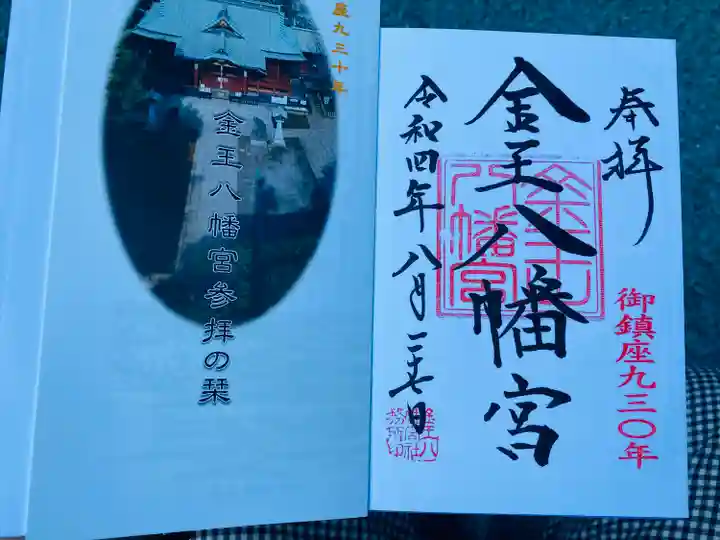 座九三十年
金王八幡宮参拝の栞
奉拝
御鎮座九三〇年
金王八幡宮
金王八幡宮
令和四年八月二十七日